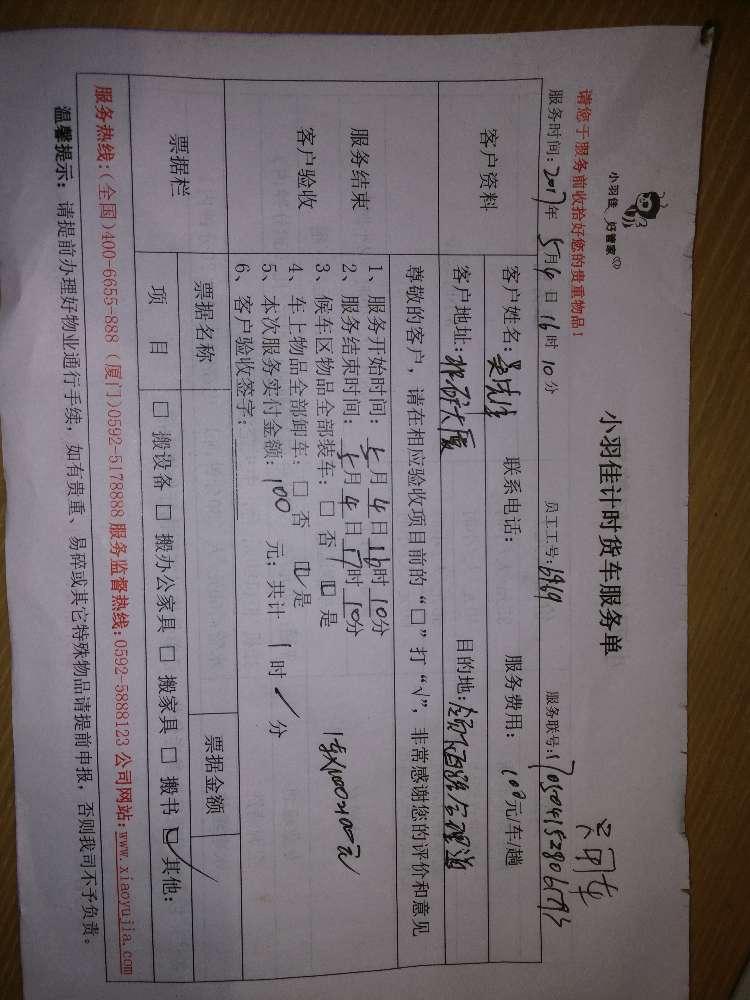 小羽佳 好管家
小羽佳计时货车服务单
请您于服务前收拾好您的贵重物品!
服务时间:2017年 5月4日16时10分 员工工号:6969 服务联号:
客户资料
客户姓名:吴先生 联系电话: 服务费用:100元/车/趟
客户地址: 大厦 目的地:
尊敬的客户,请在相应验收项目前的“□”打“√”,非常感谢您的评价和意见
服务结束
客户验收
1、服务开始时间:5月4日16时10分
2、服务结束时间:5月4日17时10分
3、候车区物品全部装车:□否 ☑是
4、车上物品全部卸车:□否 ☑是
5、本次服务实付金额:100 元;共计 1时/分
6、客户验收签字:
1车x100=100元
票据栏
票据名称 票据金额
项 目 □ 搬设备 □ 搬办公家具 □ 搬家具 □ 搬书 ☑ 其他:
服务热线:(全国)400-6655-888 (厦门)0592-5178888 服务监督热线:0592-5888123 公司网站:www.xiaoyujia.com
温馨提示:请提前办理好物业通行手续,如有贵重、易碎或其它特殊物品请提前申报,否则我司不予负责。